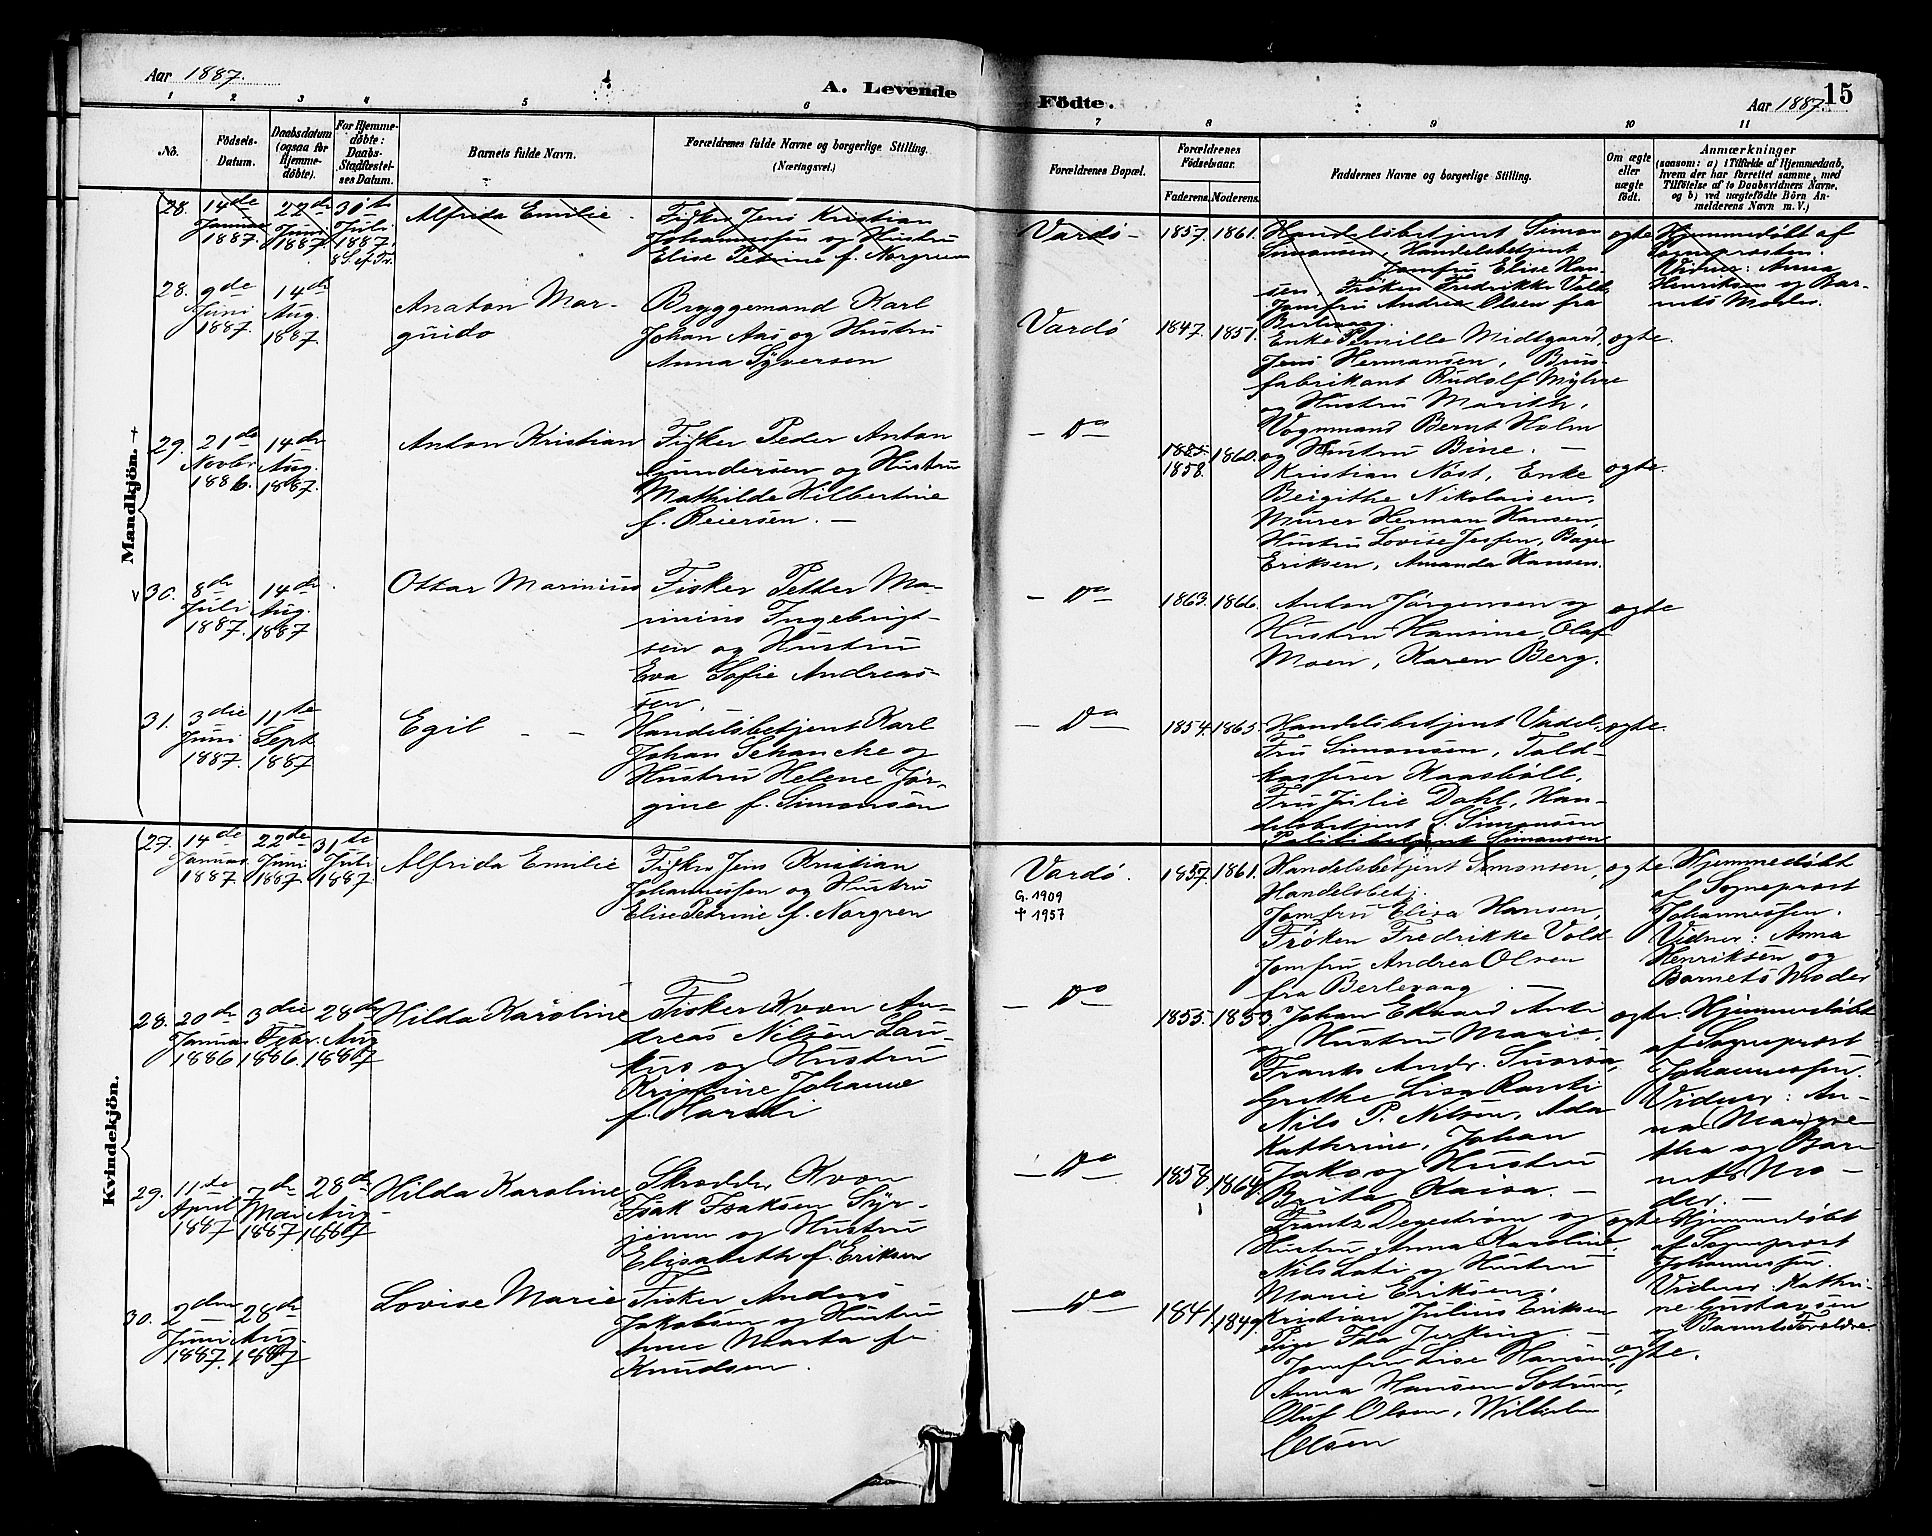 Aar 1887.
A. Levende Födte.
Aar 1887.
15
1 2 3 4 5 6 7 8 9 10 11
No.
Födsels-
Datum.
Daabsdatum
(ogsaa for
Hjemme-
döbte).
For Hjemme-
döbte:
Daabs-
Stadfæstel-
ses Datum.
Barnets fulde Navn.
Forældrenes fulde Navne og borgerlige Stilling.
(Næringsvei.)
Forældrenes Bopæl.
Forældrenes
Födselsaar.
Faderens. Moderens.
Faddernes Navne og borgerlige Stilling.
Om ægte
eller
uægte
födt.
Anmærkninger
(saasom: a) i Tilfælde af Hjemmedaab,
hvem der har forrettet samme, med
Tilföielse af to Daabsvidners Navne,
og b) ved uægtefödte Börn An-
melderens Navn m. V.)
Mandkjön. +
28.
14de
Januar
1887.
22de
Juni
1887.
30te
Juli
1887.
8 S. ef. Tr.
Alfrida Emilie
Fisker Jens Kristian
Johannessen og Hustru
Elise Petrine f. Norgreen
Vardö
1857. 1861.
Handelsbetjent Simon
Simonsen, Handelsbetjent
Jomfru Elise Han-
sen Frøken Fredrikke Vold
Jomfru Andrea Olsen fra
Berlevaag
ægte
Hjemmedøbt af
Sogneprosten.
Vidner: Anna
Henriksen og Bar-
nets Moder.
28.
9de
Juni
1887.
14de
Aug.
1887
Anaton Mar-
guido
Bryggemand Karl
Johan Aas og Hustru
Anna Syversen
Vardö
1847. 1851.
Enke Pernille Midtgaard,
Jens Hermansen, Brus-
fabrikant Rudolf Myhre
og Hustru Marith,
Vognmand Bernt Holm
og Hustru Bine. —
ægte.
29.
21de
Novbr
1886.
14de
Aug.
1887.
Anton Kristian
Fisker Peder Anton
Gundersen og Hustru
Mathilde Hilbertine
f. Reiersen. —
— Do —
1858. 1860.
Kristian Nøst, Enke
Beigithe Nikolaisen,
Murer Herman Hansen,
Hustru Lovise Jessen, Bager
Eriksen, Amanda Hansen.
ægte.
v 30.
8de
Juli
1887.
14de
Aug.
1887
Ottar Marinius
Fisker Petter Ma-
rinius Ingebrigt-
sen og Hustru
Eva Sofie Andreas-
sen.
— Do —
1863. 1866.
Anton Jørgensen og
Hustru Hansine, Olaf
Moen, Karen Berg.
ægte
31.
3die
Juni
1887.
11te
Sept
1887
Egil — —
Handelsbetjent Karl
Johan Schancke og
Hustru Helene Jør-
gine f. Simonsen
— Do —
1854. 1865.
Handelsbetjent Vadel,
Fru Simonsen, Told-
kasserer Kaasböll,
Fru Julie Dahl, Han-
delsbetjent S. Simonsen
Politibetjent Simonsen
ægte.
Kvindekjön.
27.
14de
Januar
1887
22de
Juni
1887.
31te
Juli
1887.
Alfrida Emilie
Fisker Jens Kristian
Johannessen og Hustru
Elise Petrine f. Norgren
Vardö.
G. 1909
† 1957
1857. 1861.
Handelsbetjent Simonsen,
Handelsbetj.
Jomfru Elisa Hansen,
Frøken Fredrikke Vold
Jomfru Andrea Olsen
fra Berlevaag —
ægte
Hjemmedøbt
af Sogneprost
Johannessen.
Vidner: Anna
Henriksen og
Barnets Moder
28.
20de
Januar
1886
3die
Febr.
1886.
28de
Aug
1887
Hilda Karoline
Fisker Kvæn An-
dreas Nilsen Lau-
kus og Hustru
Kristine Johanne
f. Harski
— Do
1855. 1853.
Johan Edvard Anti
og Hustru Marie,
Frants Andr. Suoroa,
Grethe Lisa Ranti
Nils P. Nilsen, Ada
Kathrine, Johan
Jako og Hustru
Brita Kaisa. —
ægte.
Hjemmedøbt
af Sogneprost
Johannessen.
Vidner: An-
na Margre
tha og Bar-
nets Mo-
der. —
29.
11te
April
1887
7de
Mai
1887
28de
Aug
1887
Hilda Karoline
Skrædder Kvæn
Isak Isaksen Syr-
jenen og Hustru
Elisabeth f. Eriksen
— Do
1858. 1864.
Frantz Degeström og
Hustru Anna Karoline.
Nils Lati og Hustru
Marie Eriksen,
ægte
Hjemmedøbt
af Sogneprost
Johannessen.
Vidner: Kathri-
ne Gustavsen
og Barnets Forældre.
30.
2den
Juni
1887.
28de
Aug.
1887
Lovise Marie
Fisker Anders
Jakobsen og Hustru
Anne Marta f.
Knudsen.
— Do
1841. 1849.
Kristian Julius Eriksen
Pige Ida Jerking. —
Jomfru Lise Hansen,
Anna Hansen Sotrum,
Oluf Olsen, Wilhelm
Olsen
ægte.